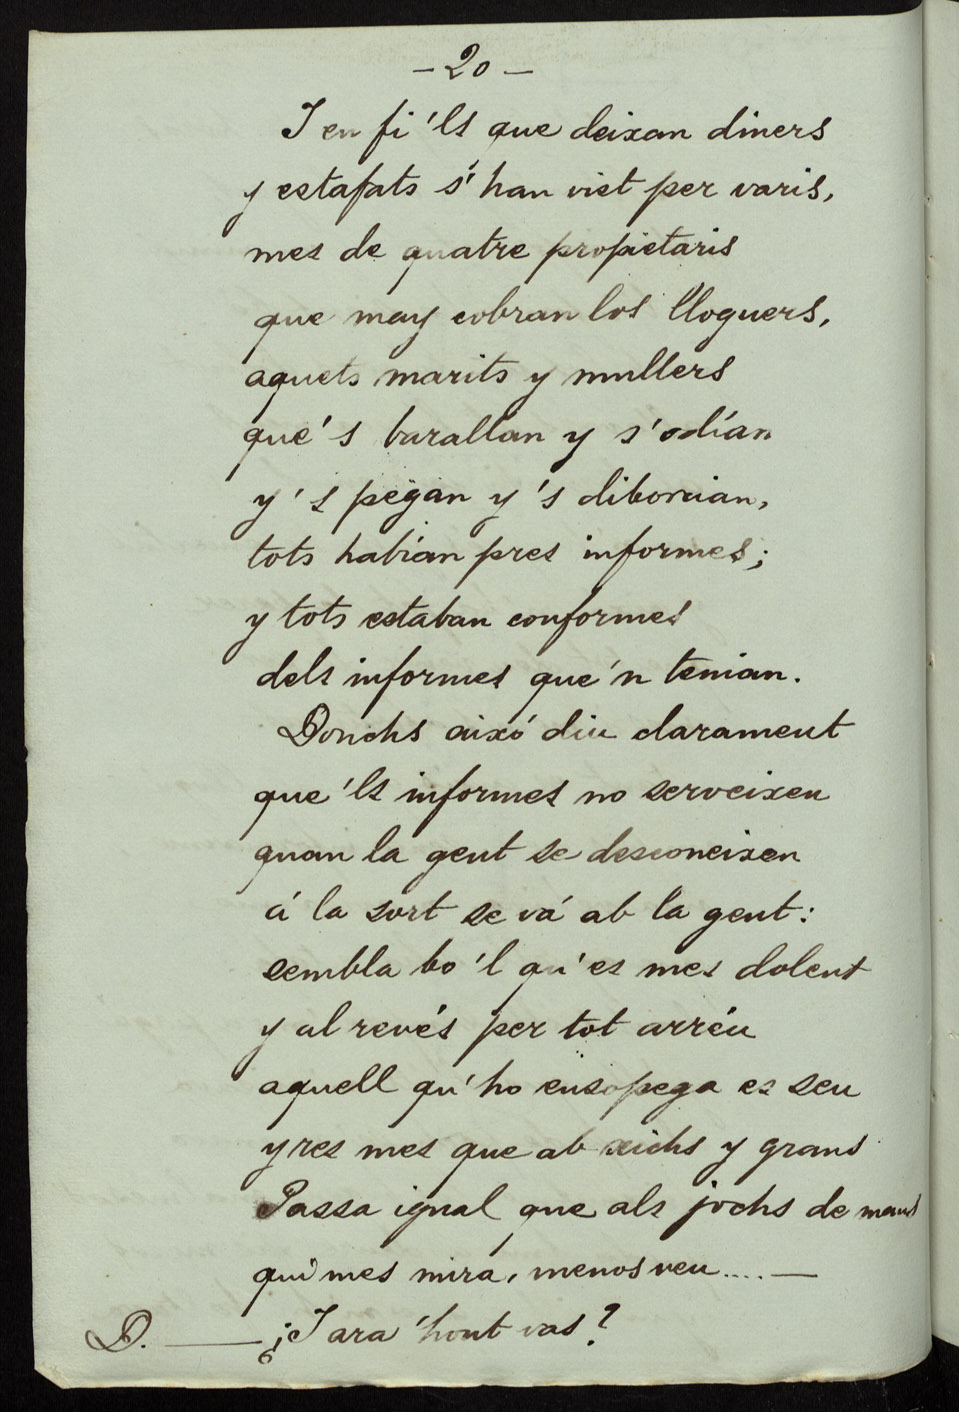 — 20 —
I en fi 'ls que deixan diners
y estafats s' han vist per varis,
mes de quatre propietaris
que may cobran los lloguers,
aquets marits y mullers
que's barallan y s'odían
y 's pegan y 's diborcian,
tots habían pres informes;
y tots estaban conformes
dels informes que'n tenian.
Donchs aixó diu clarament
que 'ls informes no serveixen
quan la gent se desconeixen
á la sort se vá ab la gent:
sembla bo 'l qu' es mes dolent
y al revés per tot arréu
aquell qu' ho ensopega es seu
y res mes que ab xichs y grans
Passa igual que als jochs de mans
qui mes mira, menos veu.... —
D. — ¿I ara 'hont vas?